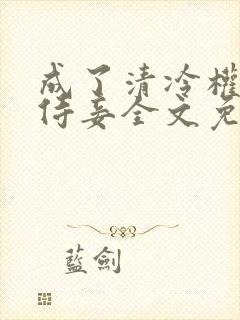 成了清冷權
侍妾全文免
藍劍